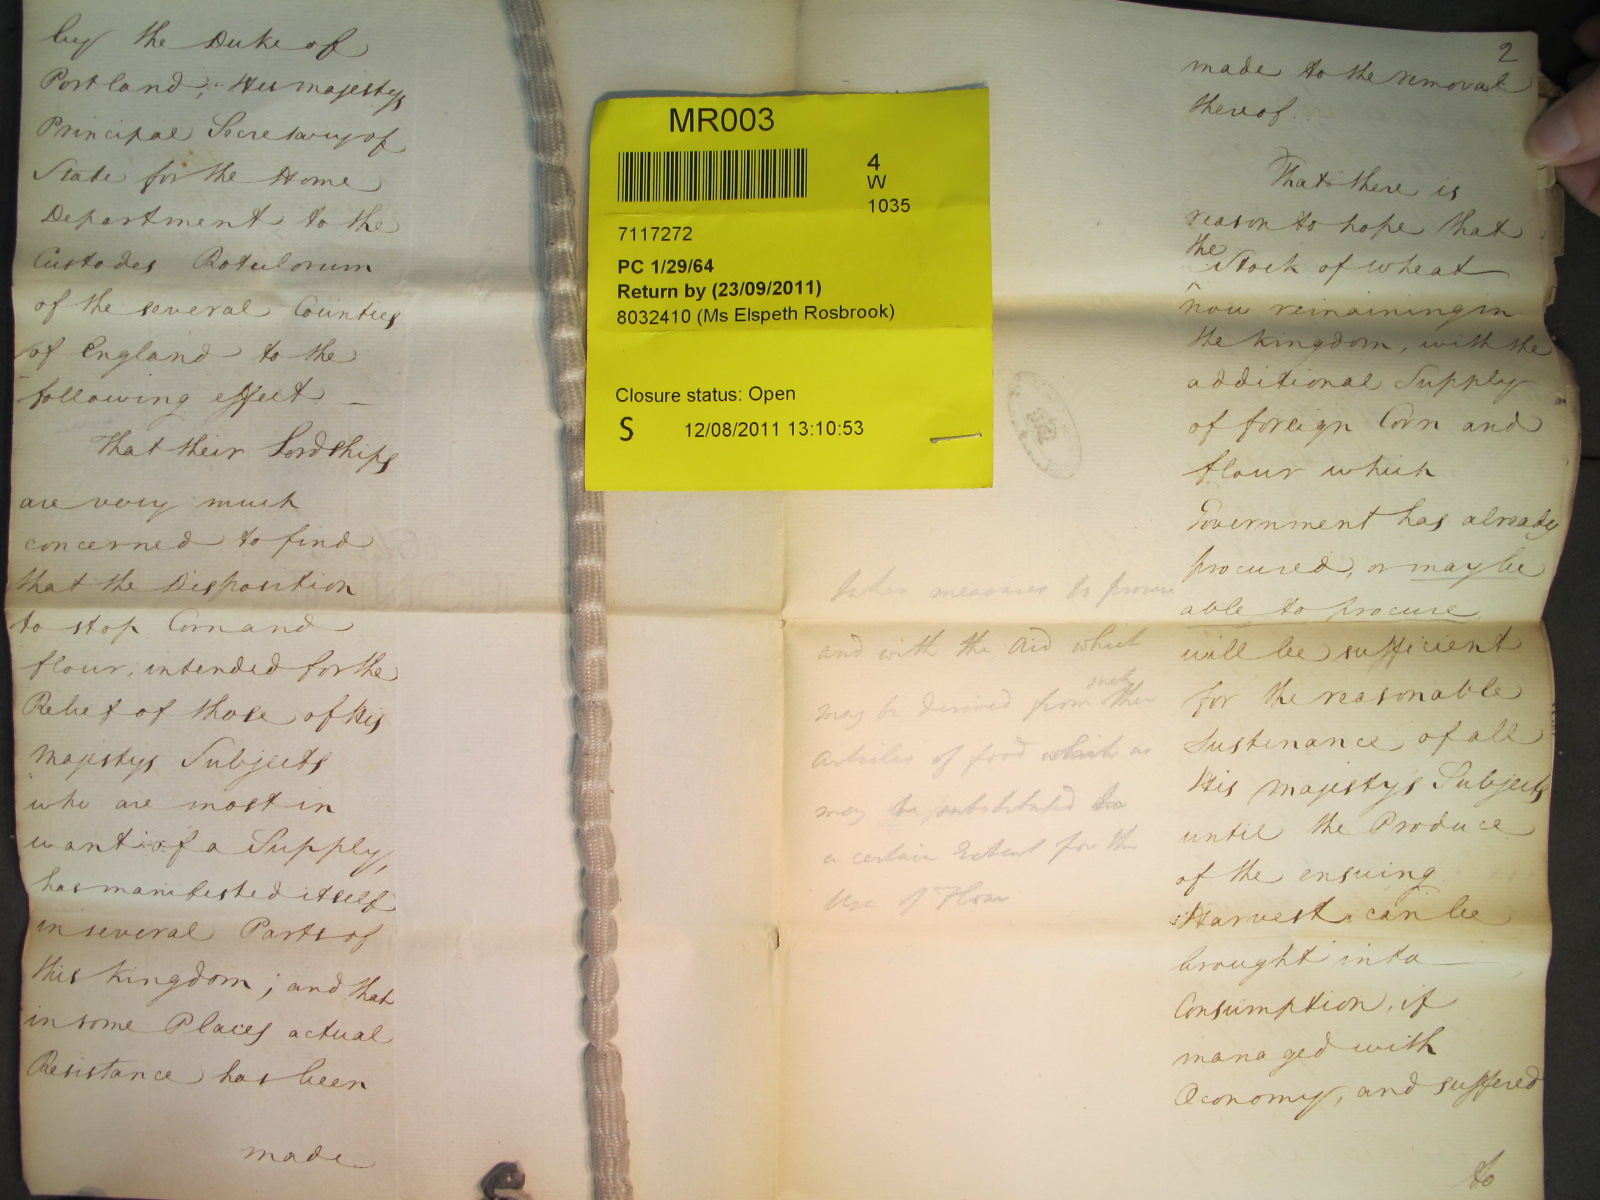 by the Duke of
Portland, His majestys
Principal Secretary of
State for the Home
Department to the
Custodes Rotulorum
of the several Counties
of England to the
following effect —
That their Lordships
are very much
concerned to find
that the Disposition
to stop Corn and
flour, intended for the
Relief of those of His
majestys Subjects
who are most in
want of a Supply,
has manifested itself
in several Parts of
this kingdom; and that
in some Places actual
Resistance has been
made
MR003
4
W
1035
7117272
PC 1/29/64
Return by (23/09/2011)
8032410 (Ms Elspeth Rosbrook)
Closure status: Open
S 12/08/2011 13:10:53
taken measures to procure
and with the Aid which
may be derived from such other
Articles of food which as
may be substituted to
a certain Extent for the
Use of Flour
2
made to the removal
thereof.
That there is
reason to hope that
the Stock of wheat
now remaining in
the kingdom, with the
additional Supply
of foreign Corn and
flour which
Government has already
procured, or may be
able to procure
will be sufficient
for the reasonable
Sustenance of all
His majesty's Subjects
until the Produce
of the ensuing
Harvest can be
brought into
Consumption, if
managed with
Oeconomy, and suffered
to